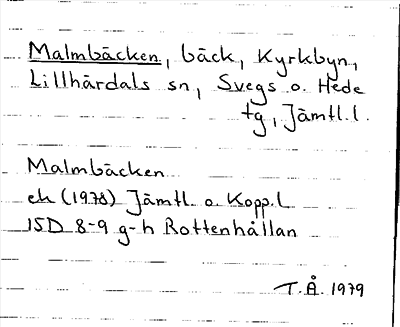 Malmbäcken, bäck, Kyrkbyn,
Lillhärdals sn, Svegs o. Hede
tg, Jämtl. l.
Malmbäcken
ek (1978) Jämtl. o. Kopp. l
15D 8-9 g-h Rottenhållan
T.Å. 1979